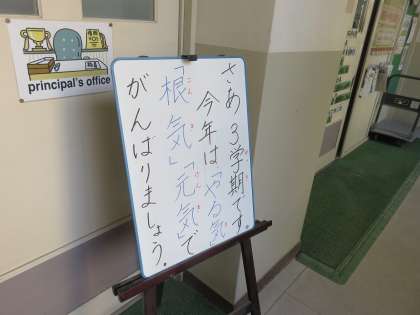 さあ3学期です。
今年は「やる気」
「根気」「元気」で
がんばりましょう。
principal's office